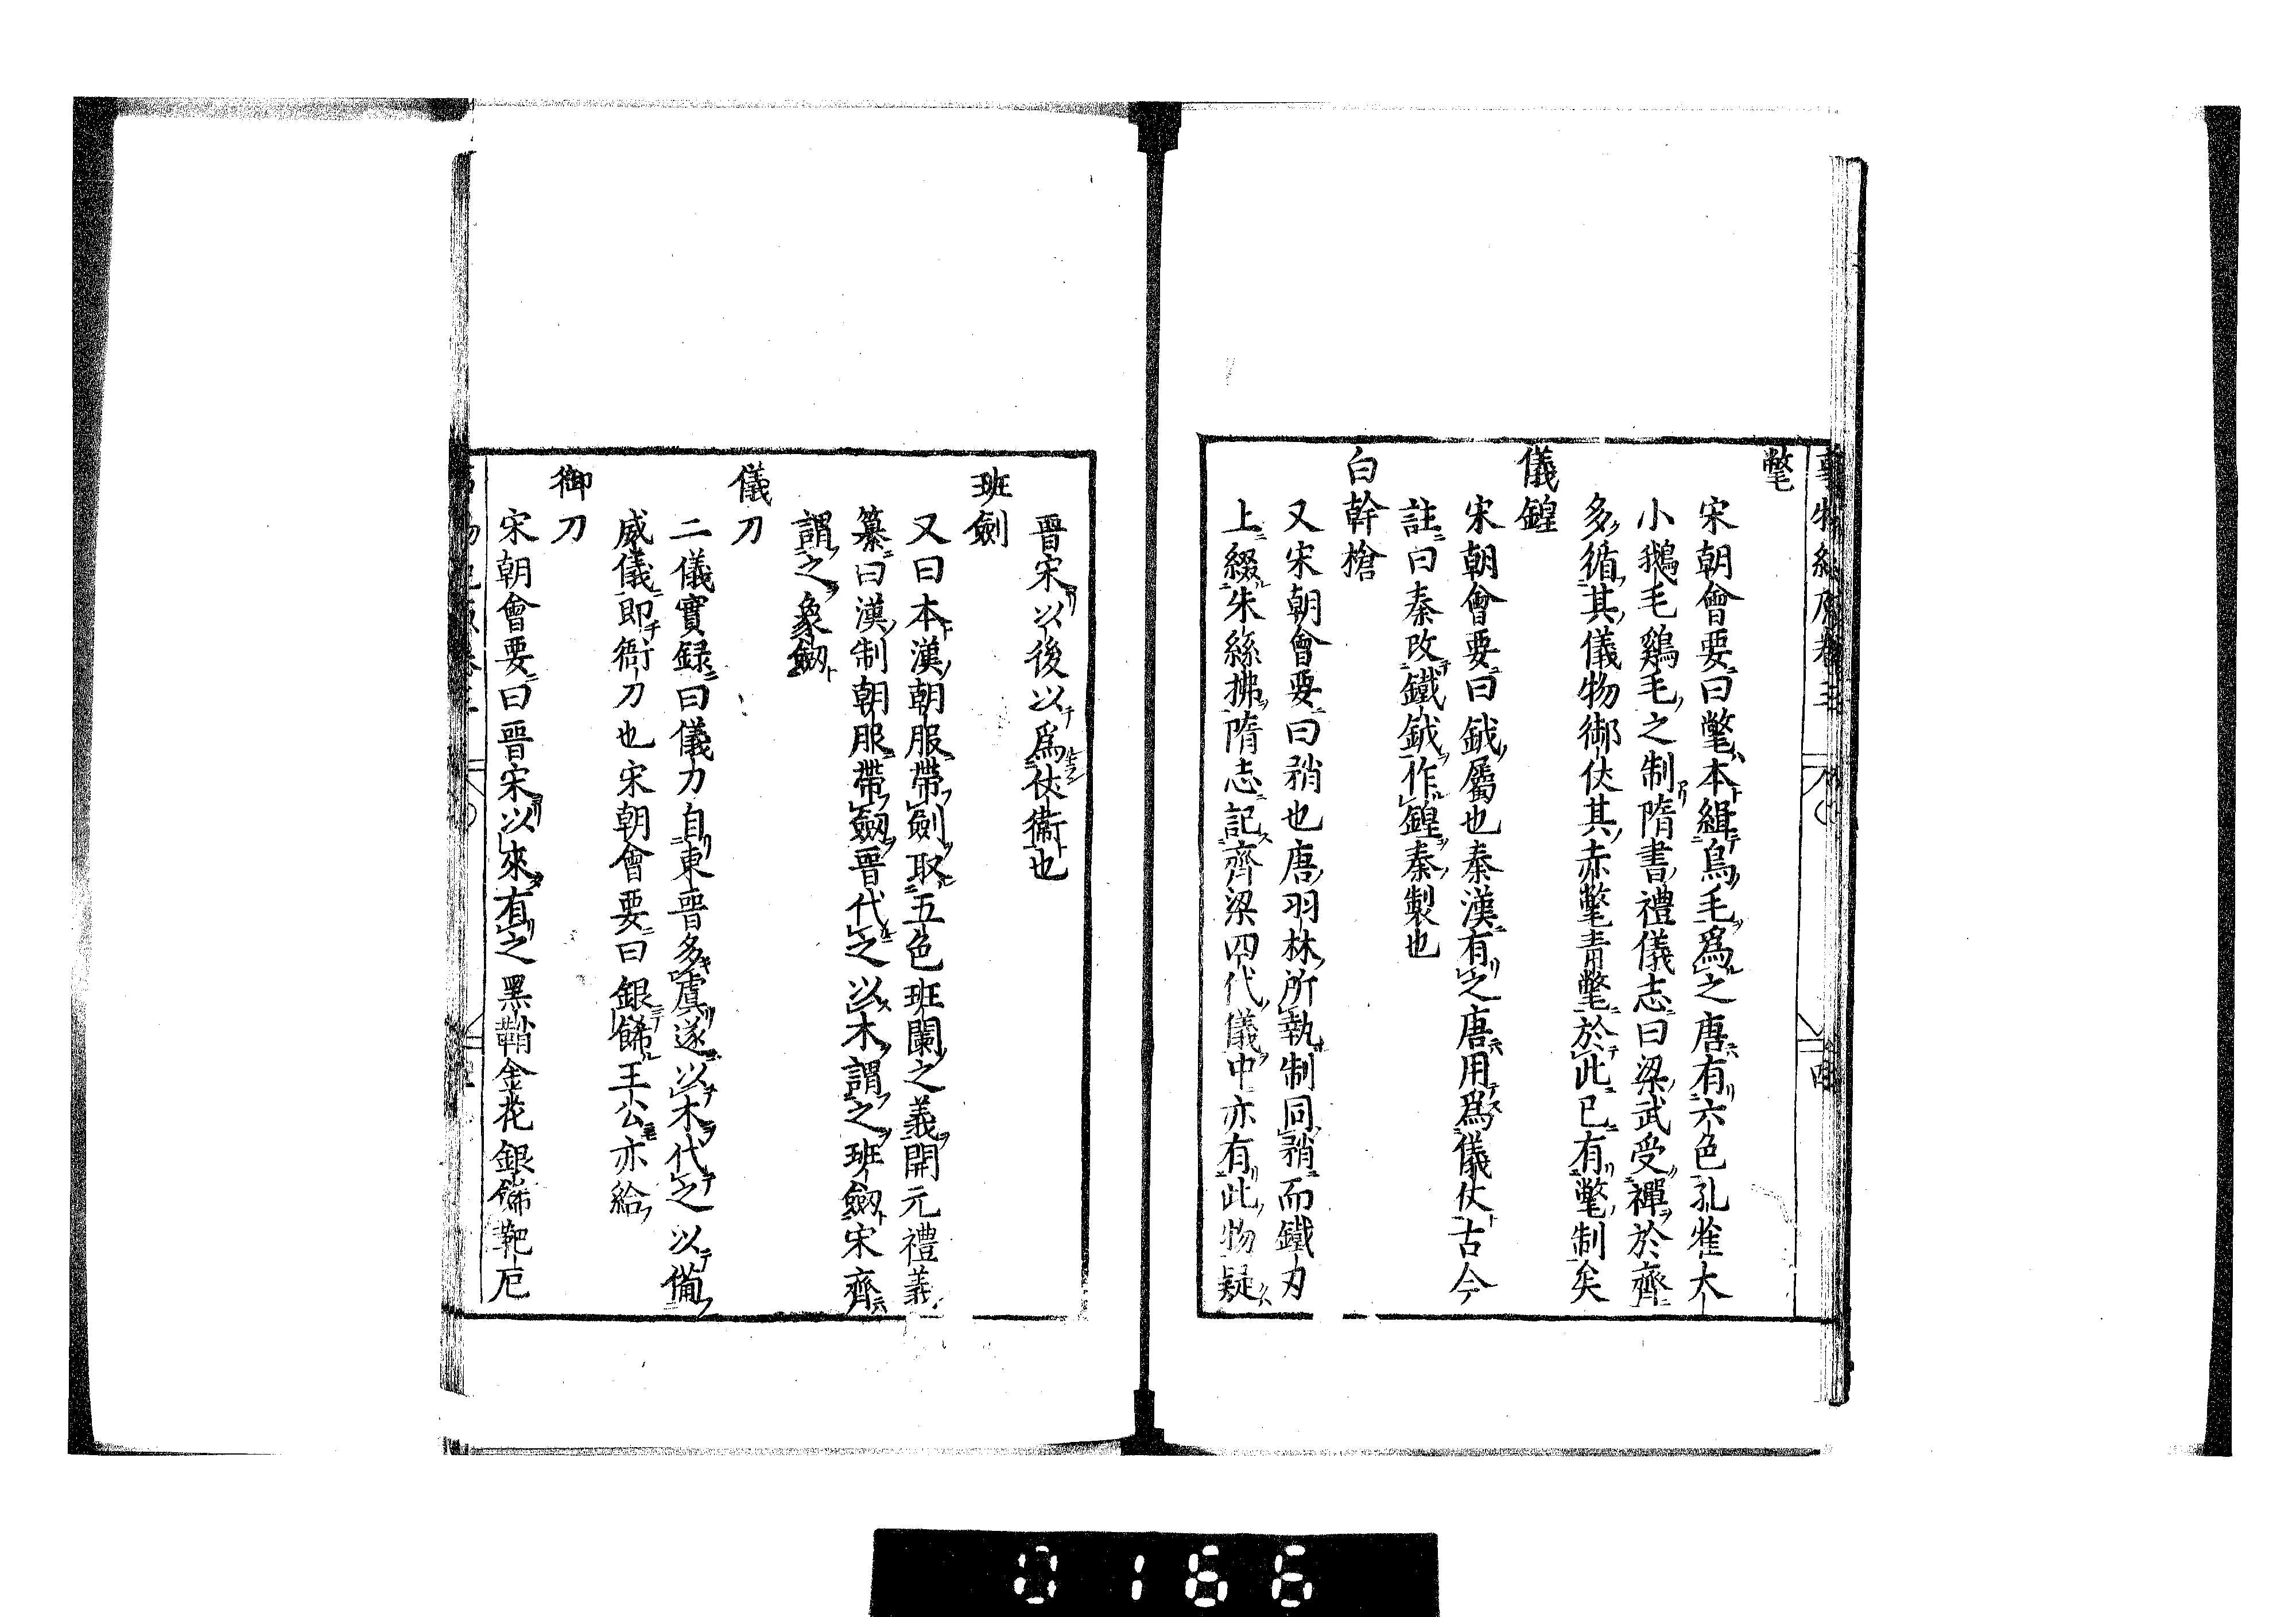 事物紀原卷三
氅
宋朝會要曰氅本緝鳥毛爲之唐有六色孔雀大
小鵝毛鷄毛之制隋書禮儀志曰梁武受禪於齊
多循其儀物御仗其赤氅青氅於此已有氅制矣
儀鍠
宋朝會要曰鉞屬也秦漢有之唐用爲儀仗古今
註曰秦改鐵鉞作鍠秦製也
白幹槍
又宋朝會要曰矟也唐羽林所執制同矟而鐵刃
上綴朱絲拂隋志記齊梁四代儀中亦有此物疑
晉宋以後以爲仗衞也
班劍
又曰本漢朝服帶劍取五色班闌之義開元禮義
纂曰漢制朝服帶劔晉代之以木謂之班劔宋齊
謂之象劔
儀刀
二儀實録曰儀刀自東晉多虞遂以木代之以備
威儀即衙刀也宋朝會要曰銀餙王公亦給
御刀
宋朝會要曰晉宋以來有之黑鞘金花銀餙靶厄
0166